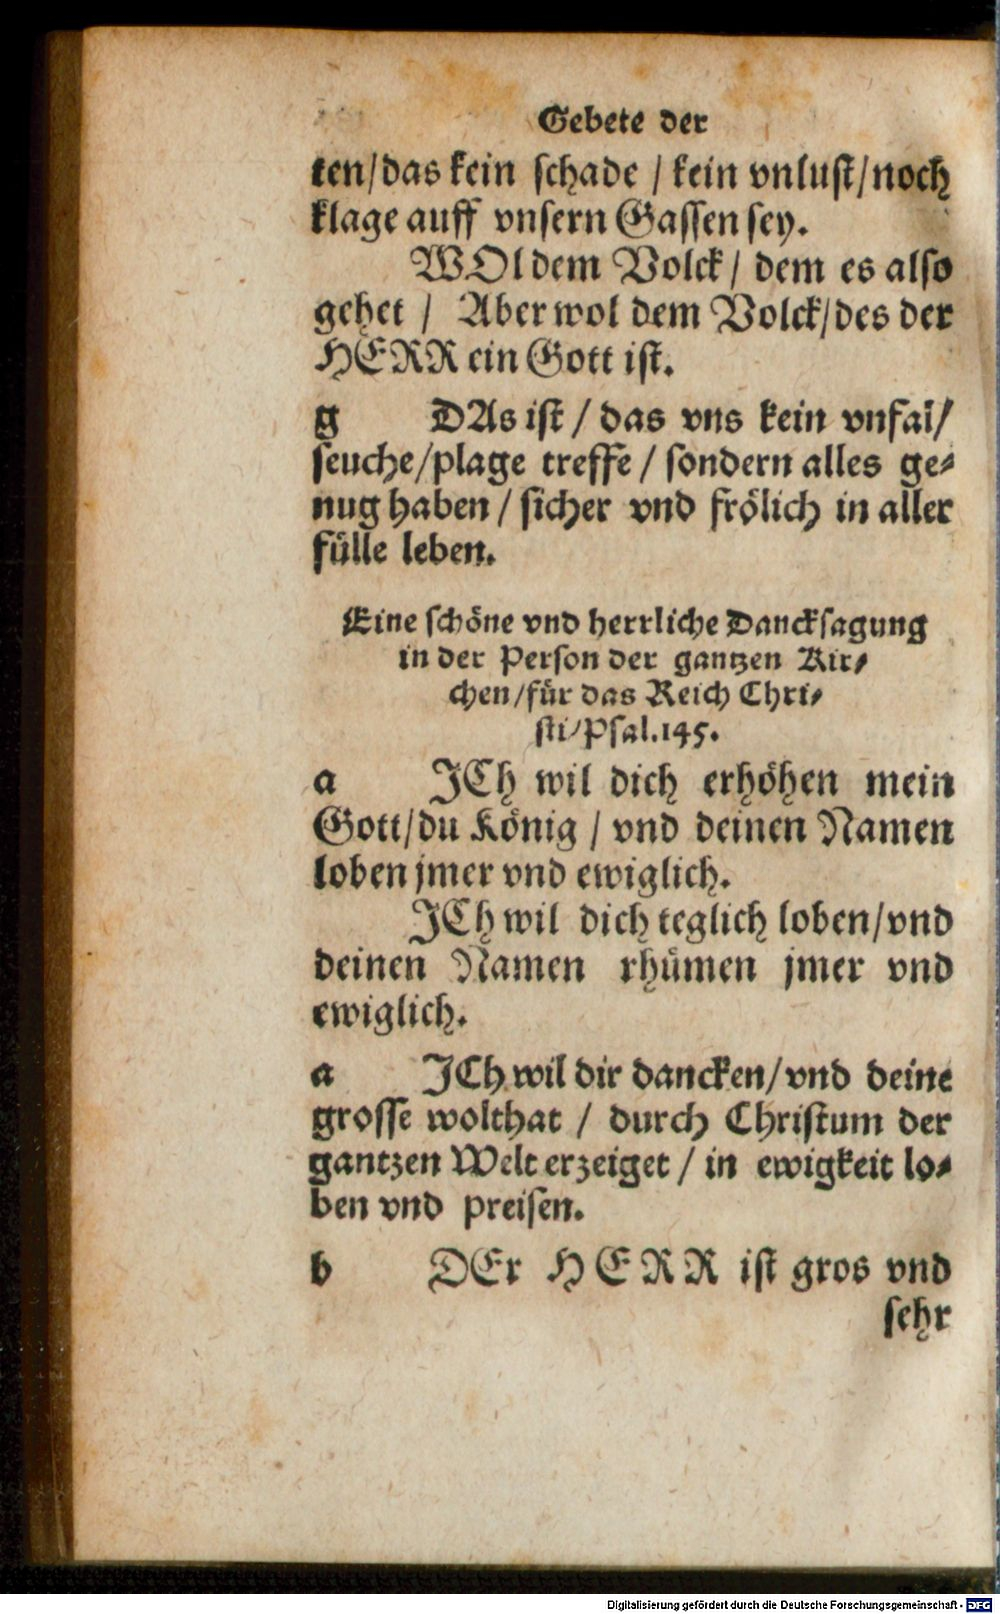 Gebete der
ten/das kein schade / kein vnlust/noch
klage auff vnsern Gassen sey.
WOl dem Volck / dem es also
gehet / Aber wol dem Volck/des der
HERR ein Gott ist.
g DAs ist / das vns kein vnfal/
seuche/plage treffe / sondern alles ge-
nug haben / sicher vnd frölich in aller
fülle leben.
Eine schöne vnd herrliche Dancksagung
in der Person der gantzen Kir-
chen/für das Reich Chri-
sti/Psal.145.
a JCh wil dich erhöhen mein
Gott/du König / vnd deinen Namen
loben jmer vnd ewiglich.
JCh wil dich teglich loben/vnd
deinen Namen rhümen jmer vnd
ewiglich.
a JCh wil dir dancken/vnd deine
grosse wolthat / durch Christum der
gantzen Welt erzeiget / in ewigkeit lo-
ben vnd preisen.
b DEr HERR ist gros vnd
sehr
Digitalisierung gefördert durch die Deutsche Forschungsgemeinschaft - DFG